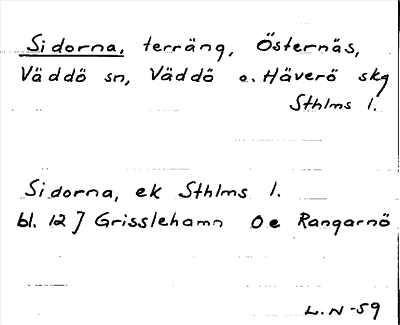 Sidorna, terräng, Östernäs,
Väddö sn, Väddö o. Häverö skg
Sthlms l.
Sidorna, ek Sthlms l.
bl. 12 J Grisslehamn Oe Rangarnö
L.N -59